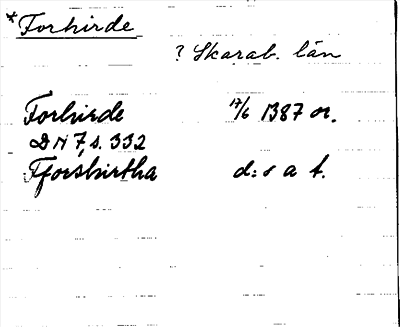 *Forhirde
? Skarab. län
Forhirde 17/6 1387 or.
DN 7, s. 332
Fforshirtha d:o a t.